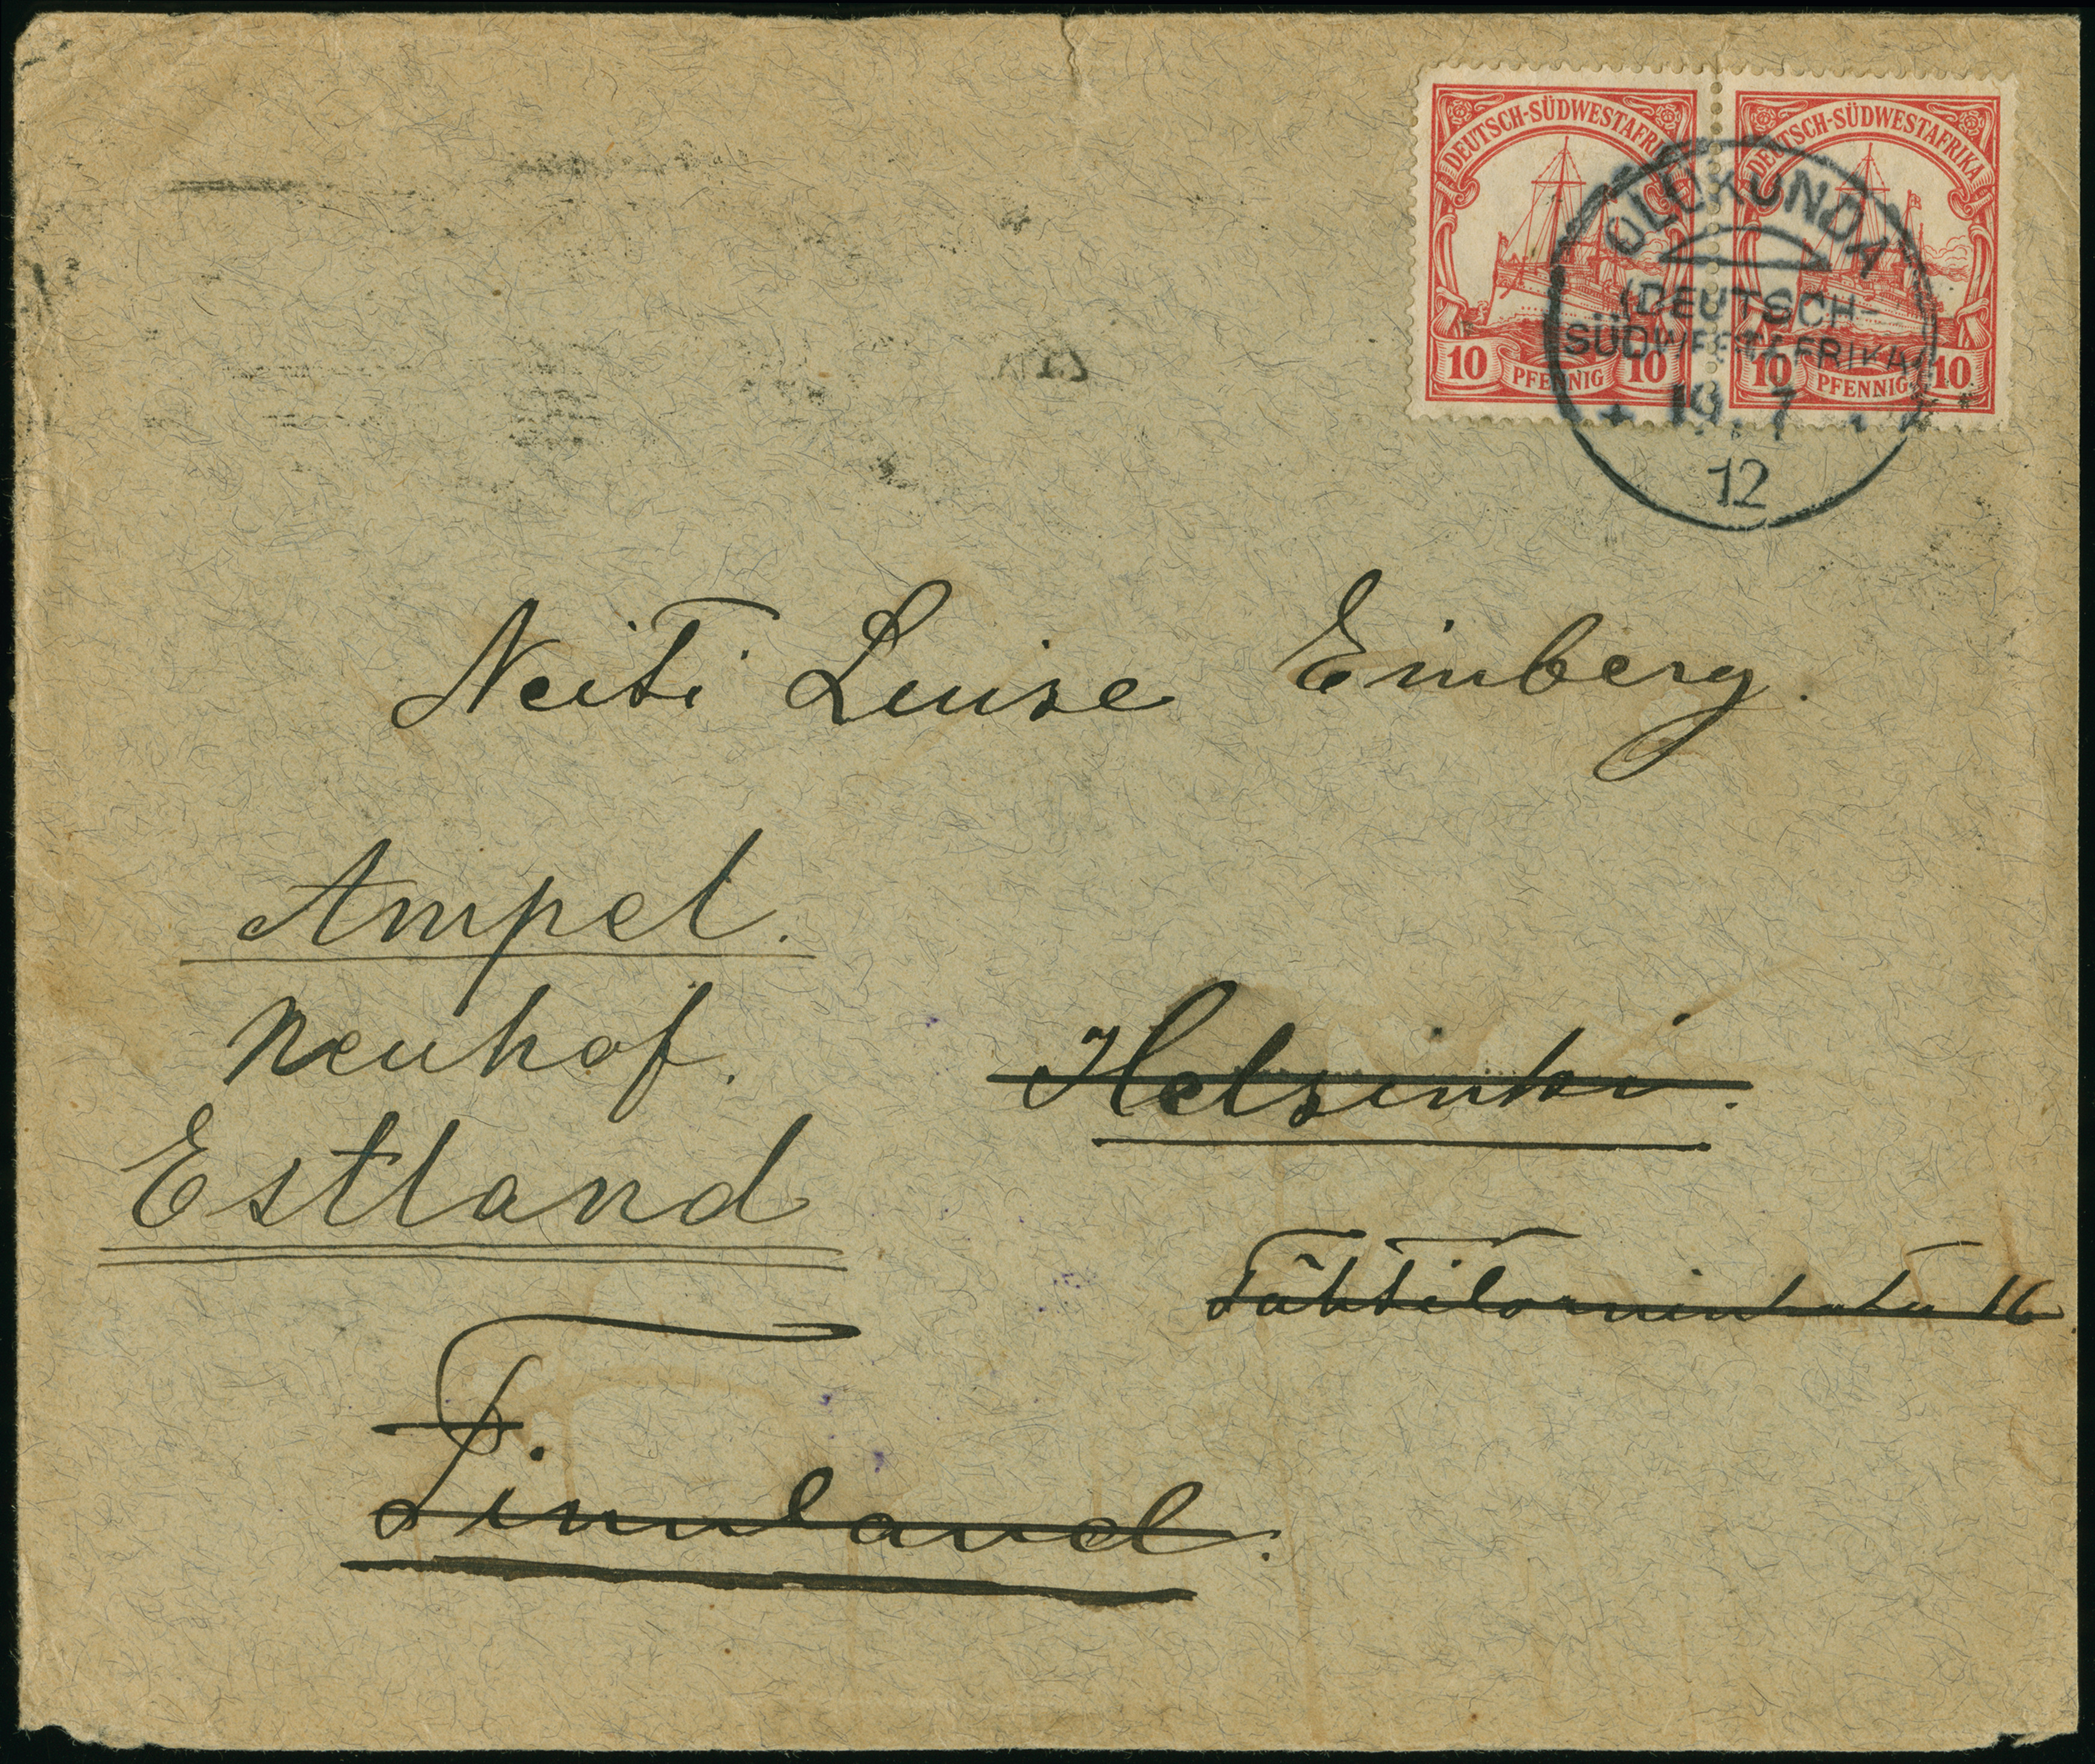 DEUTSCH-SÜDWESTAFRIKA
10 PFENNIG 10
DEUTSCH-SÜDWESTAFRIKA
10 PFENNIG 10
OLUKONDA
(DEUTSCH-
SÜDWESTAFRIKA)
19. 7.
12
Neiti Luise Einberg.
Ampel.
Neuhof.
Estland
Helsinki.
Tähtitorninkatu 16
Finnland.